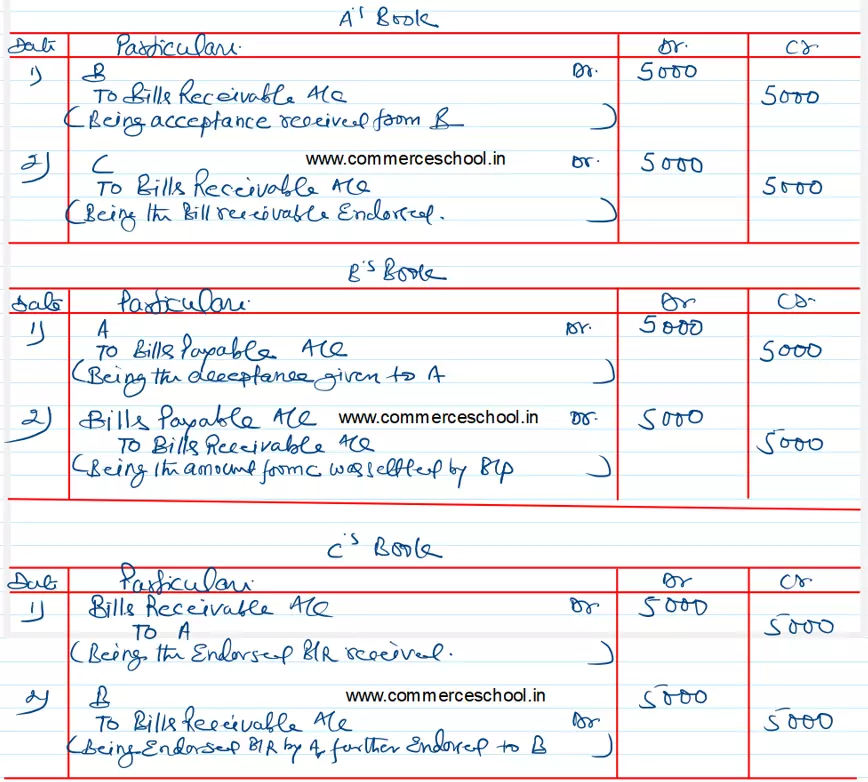 A's Book
Date Particulars Dr. Cr
1) B Dr. 5000
To Bills Receivable A/c 5000
(Being acceptance received from B)
2) C www.commerceschool.in Dr. 5000
To Bills Receivable A/c 5000
(Being the Bill receivable Endorsed.)
B's Book
Date Particulars Dr Cr
1) A Dr. 5000
To Bills Payable A/c 5000
(Being the acceptance given to A)
2) Bills Payable A/c www.commerceschool.in Dr. 5000
To Bills Receivable A/c 5000
(Being the amount from c was settled by B/p)
C's Book
Date Particulars Dr Cr
1) Bills Receivable A/c Dr 5000
To A 5000
(Being the Endorsed B/R received.)
2) B www.commerceschool.in 5000
To Bills Receivable A/c Dr 5000
(Being Endorsed B/R by A further Endorsed to B)